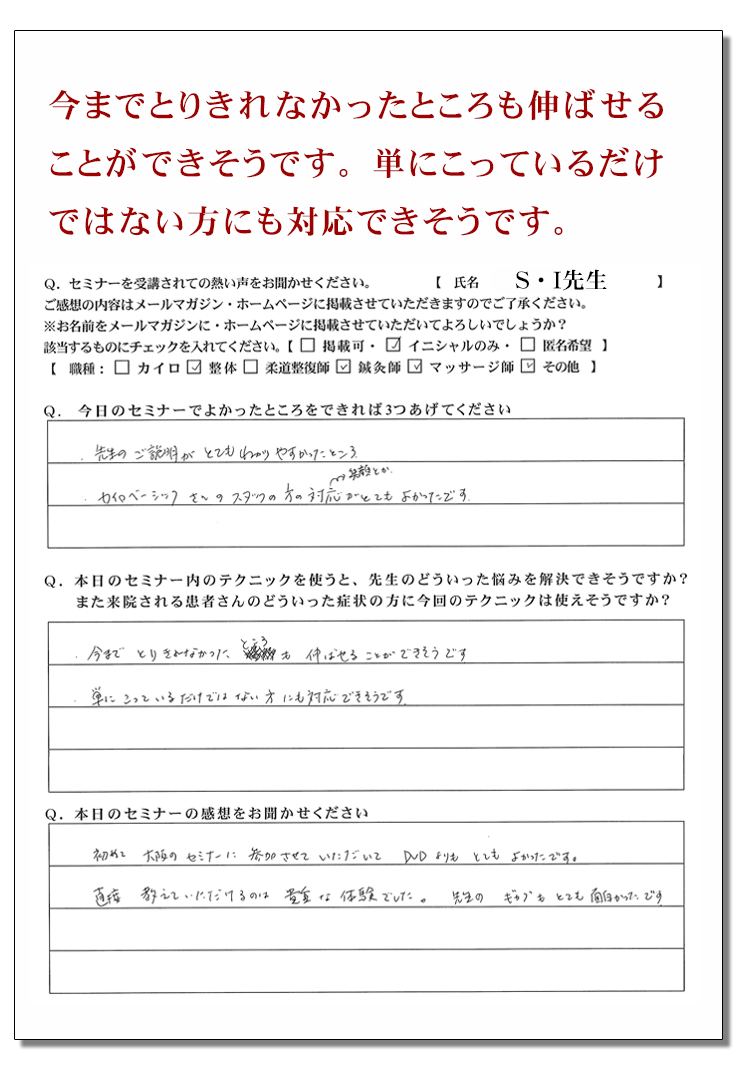 今までとりきれなかったところも伸ばせる
ことができそうです。単にこっているだけ
ではない方にも対応できそうです。
Q. セミナーを受講されての熱い声をお聞かせください。 【 氏名 S・I先生 】
ご感想の内容はメールマガジン・ホームページに掲載させていただきますのでご了承ください。
※お名前をメールマガジンに・ホームページに掲載させていただいてよろしいでしょうか？
該当するものにチェックを入れてください。【 □ 掲載可・ ☑ イニシャルのみ・ □ 匿名希望 】
【 職種： □ カイロ ☑ 整体 □ 柔道整復師 ☑ 鍼灸師 ☑ マッサージ師 ☑ その他 】
Q. 今日のセミナーでよかったところをできれば3つあげてください
・先生のご説明がとてもわかりやすかったところ
・カイロベーシックさんのスタッフの方の対応がとてもよかったです
Q. 本日のセミナー内のテクニックを使うと、先生のどういった悩みを解決できそうですか？
また来院される患者さんのどういった症状の方に今回のテクニックは使えそうですか？
・今までとりきれなかったところも伸ばせることができそうです
・単にこっているだけではない方にも対応できそうです
Q. 本日のセミナーの感想をお聞かせください
初めて大阪のセミナーに参加させていただいてDVDよりもとてもよかったです。
直接教えていただけるのは貴重な体験でした。先生のギャグもとても面白かったです